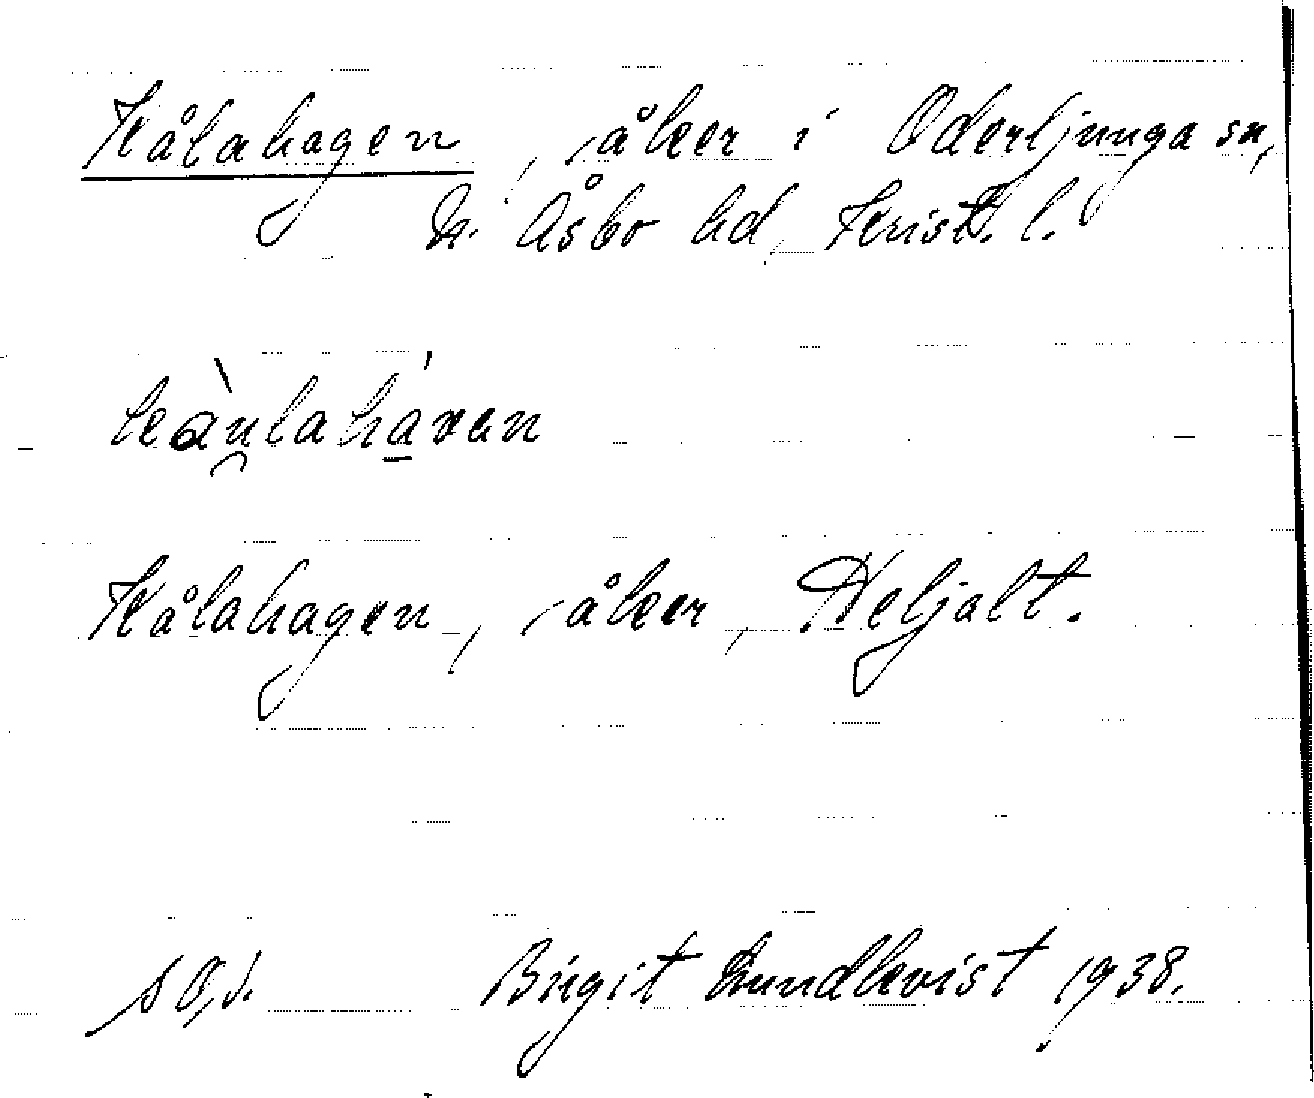 Kålahagen, åker i Oderljunga sn,
N. Åsbo hd, Krist. l.
kàu̯lahá̱xan
Kålahagen, åker, Heljalt.
Birgit Lundkvist 1938.